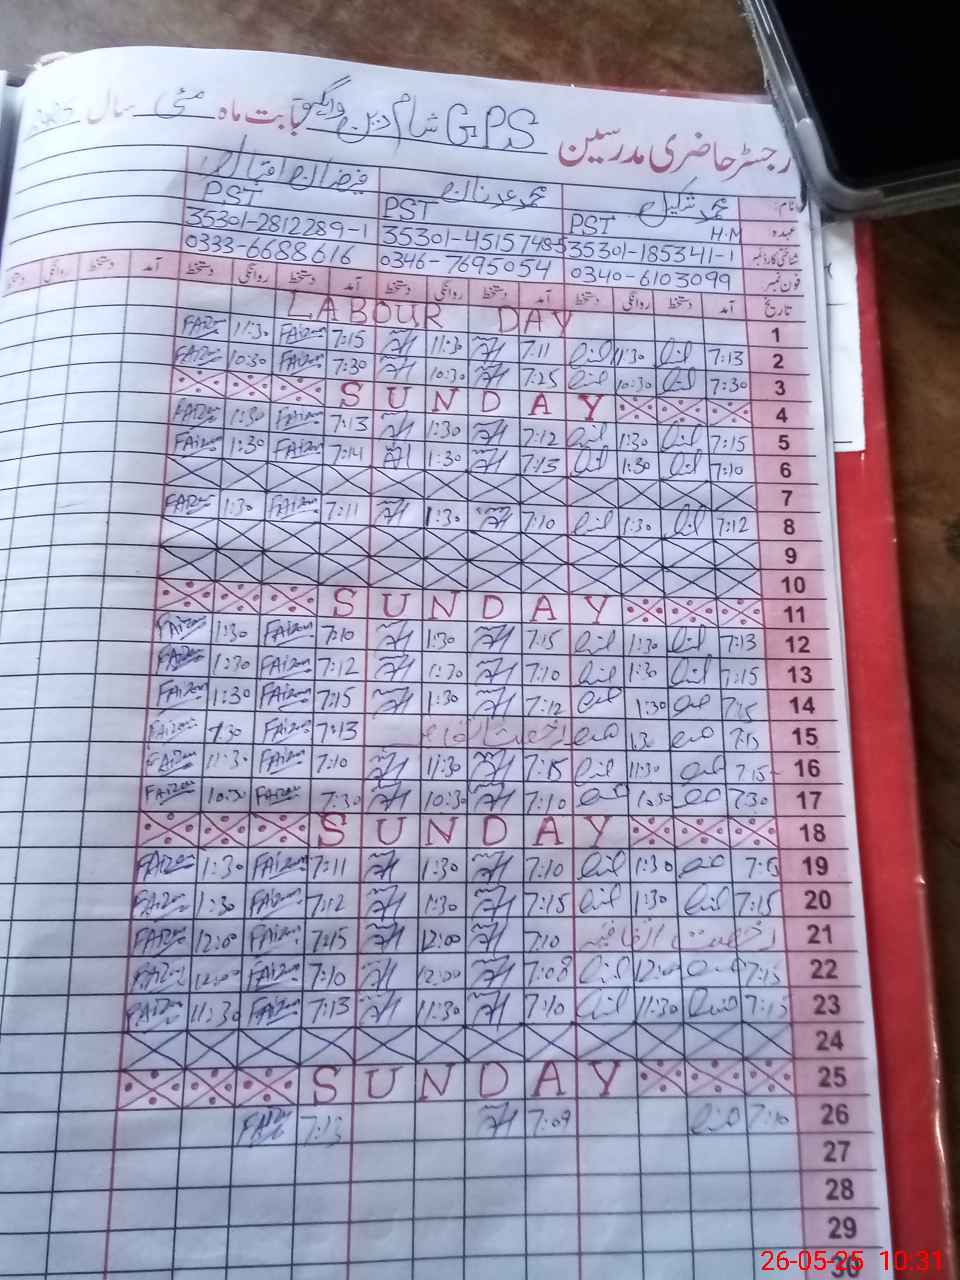 رجسٹر حاضری مدرسین GPS شام دین وانگی بابت ماہ مئی سال
نام: محمد شکیل محمد عدنان فیضان اقبال
عہدہ PST H.M PST PST
شناختی کارڈ نمبر 35301-185341-1 35301-4515748-5 35301-2812289-1
فون نمبر 0340-6103099 0346-7695054 0333-6688616
تاریخ آمد دستخط روانگی دستخط آمد دستخط روانگی دستخط آمد دستخط روانگی دستخط آمد دستخط روانگی دستخط
1 LABOUR DAY
2 7:13 11:30 7:11 11:30 7:15 FAIZAN 11:30 FAIZAN
3 7:30 10:30 7:25 10:30 7:30 FAIZAN 10:30 FAIZAN
4 SUNDAY
5 7:15 1:30 7:12 1:30 7:13 FAIZAN 1:30 FAIZAN
6 7:10 1:30 7:15 1:30 7:14 FAIZAN 1:30 FAIZAN
7
8 7:12 1:30 7:10 1:30 7:11 FAIZAN 1:30 FAIZAN
9
10
11 SUNDAY
12 7:13 1:30 7:15 1:30 7:10 FAIZAN 1:30 FAIZAN
13 7:15 1:30 7:10 1:30 7:12 FAIZAN 1:30 FAIZAN
14 7:15 1:30 7:12 1:30 7:15 FAIZAN 1:30 FAIZAN
15 7:15 رخصت اتفاقیہ 7:13 FAIZAN 1:30 FAIZAN
16 7:15 11:30 7:15 11:30 7:10 FAIZAN 11:30 FAIZAN
17 7:30 10:30 7:10 10:30 7:30 FAIZAN 10:30 FAIZAN
18 SUNDAY
19 1:30 7:10 1:30 7:11 FAIZAN 1:30 FAIZAN
20 7:15 1:30 7:15 1:30 7:12 FAIZAN 1:30 FAIZAN
21 رخصت اتفاقیہ 7:10 12:00 7:15 FAIZAN 12:00 FAIZAN
22 7:15 12:00 7:08 12:00 7:10 FAIZAN 12:00 FAIZAN
23 7:15 11:30 7:10 11:30 7:13 FAIZAN 11:30 FAIZAN
24
25 SUNDAY
26 7:10 7:09 7:13 FAIZAN
27
28
29
30
26-05-25 10:31